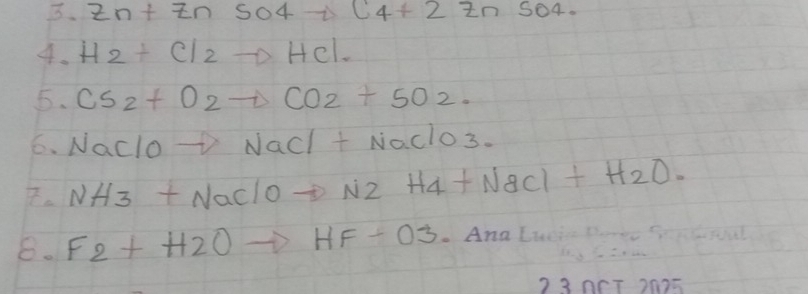 3. Zn + Zn SO4 → C4 + 2 Zn SO4.
4. H2 + Cl2 → HCl.
5. CS2 + O2 → CO2 + SO2.
6. NaClO → NaCl + NaClO3.
7. NH3 + NaClO → N2 H4 + NaCl + H2O.
8. F2 + H2O → HF - O3. Ana
23 OCT 2025